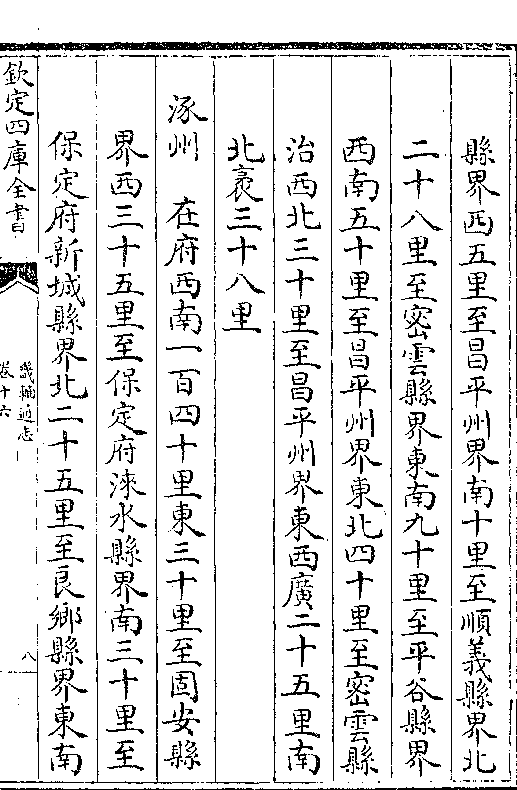 縣界西五里至昌平州界南十里至順義縣界北
二十八里至密雲縣界東南九十里至平谷縣界
西南五十里至昌平州界東北四十里至密雲縣
治西北三十里至昌平州界東西廣二十五里南
北袤三十八里
涿州 在府西南一百四十里東三十里至固安縣
界西三十五里至保定府淶水縣界南三十里至
保定府新城縣界北二十五里至良鄉縣界東南
欽定四庫全書
畿輔通志
卷十六
八